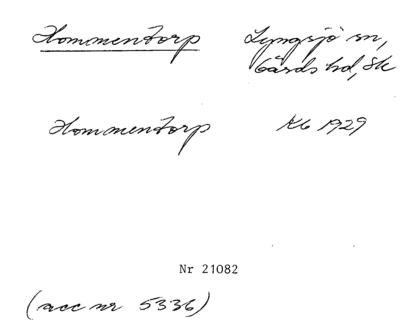 Hommentorp Lyngsjö sn,
Gärds hd, Sk
Hommentorp Kb 1929
Nr 21082
(acc nr 5336)